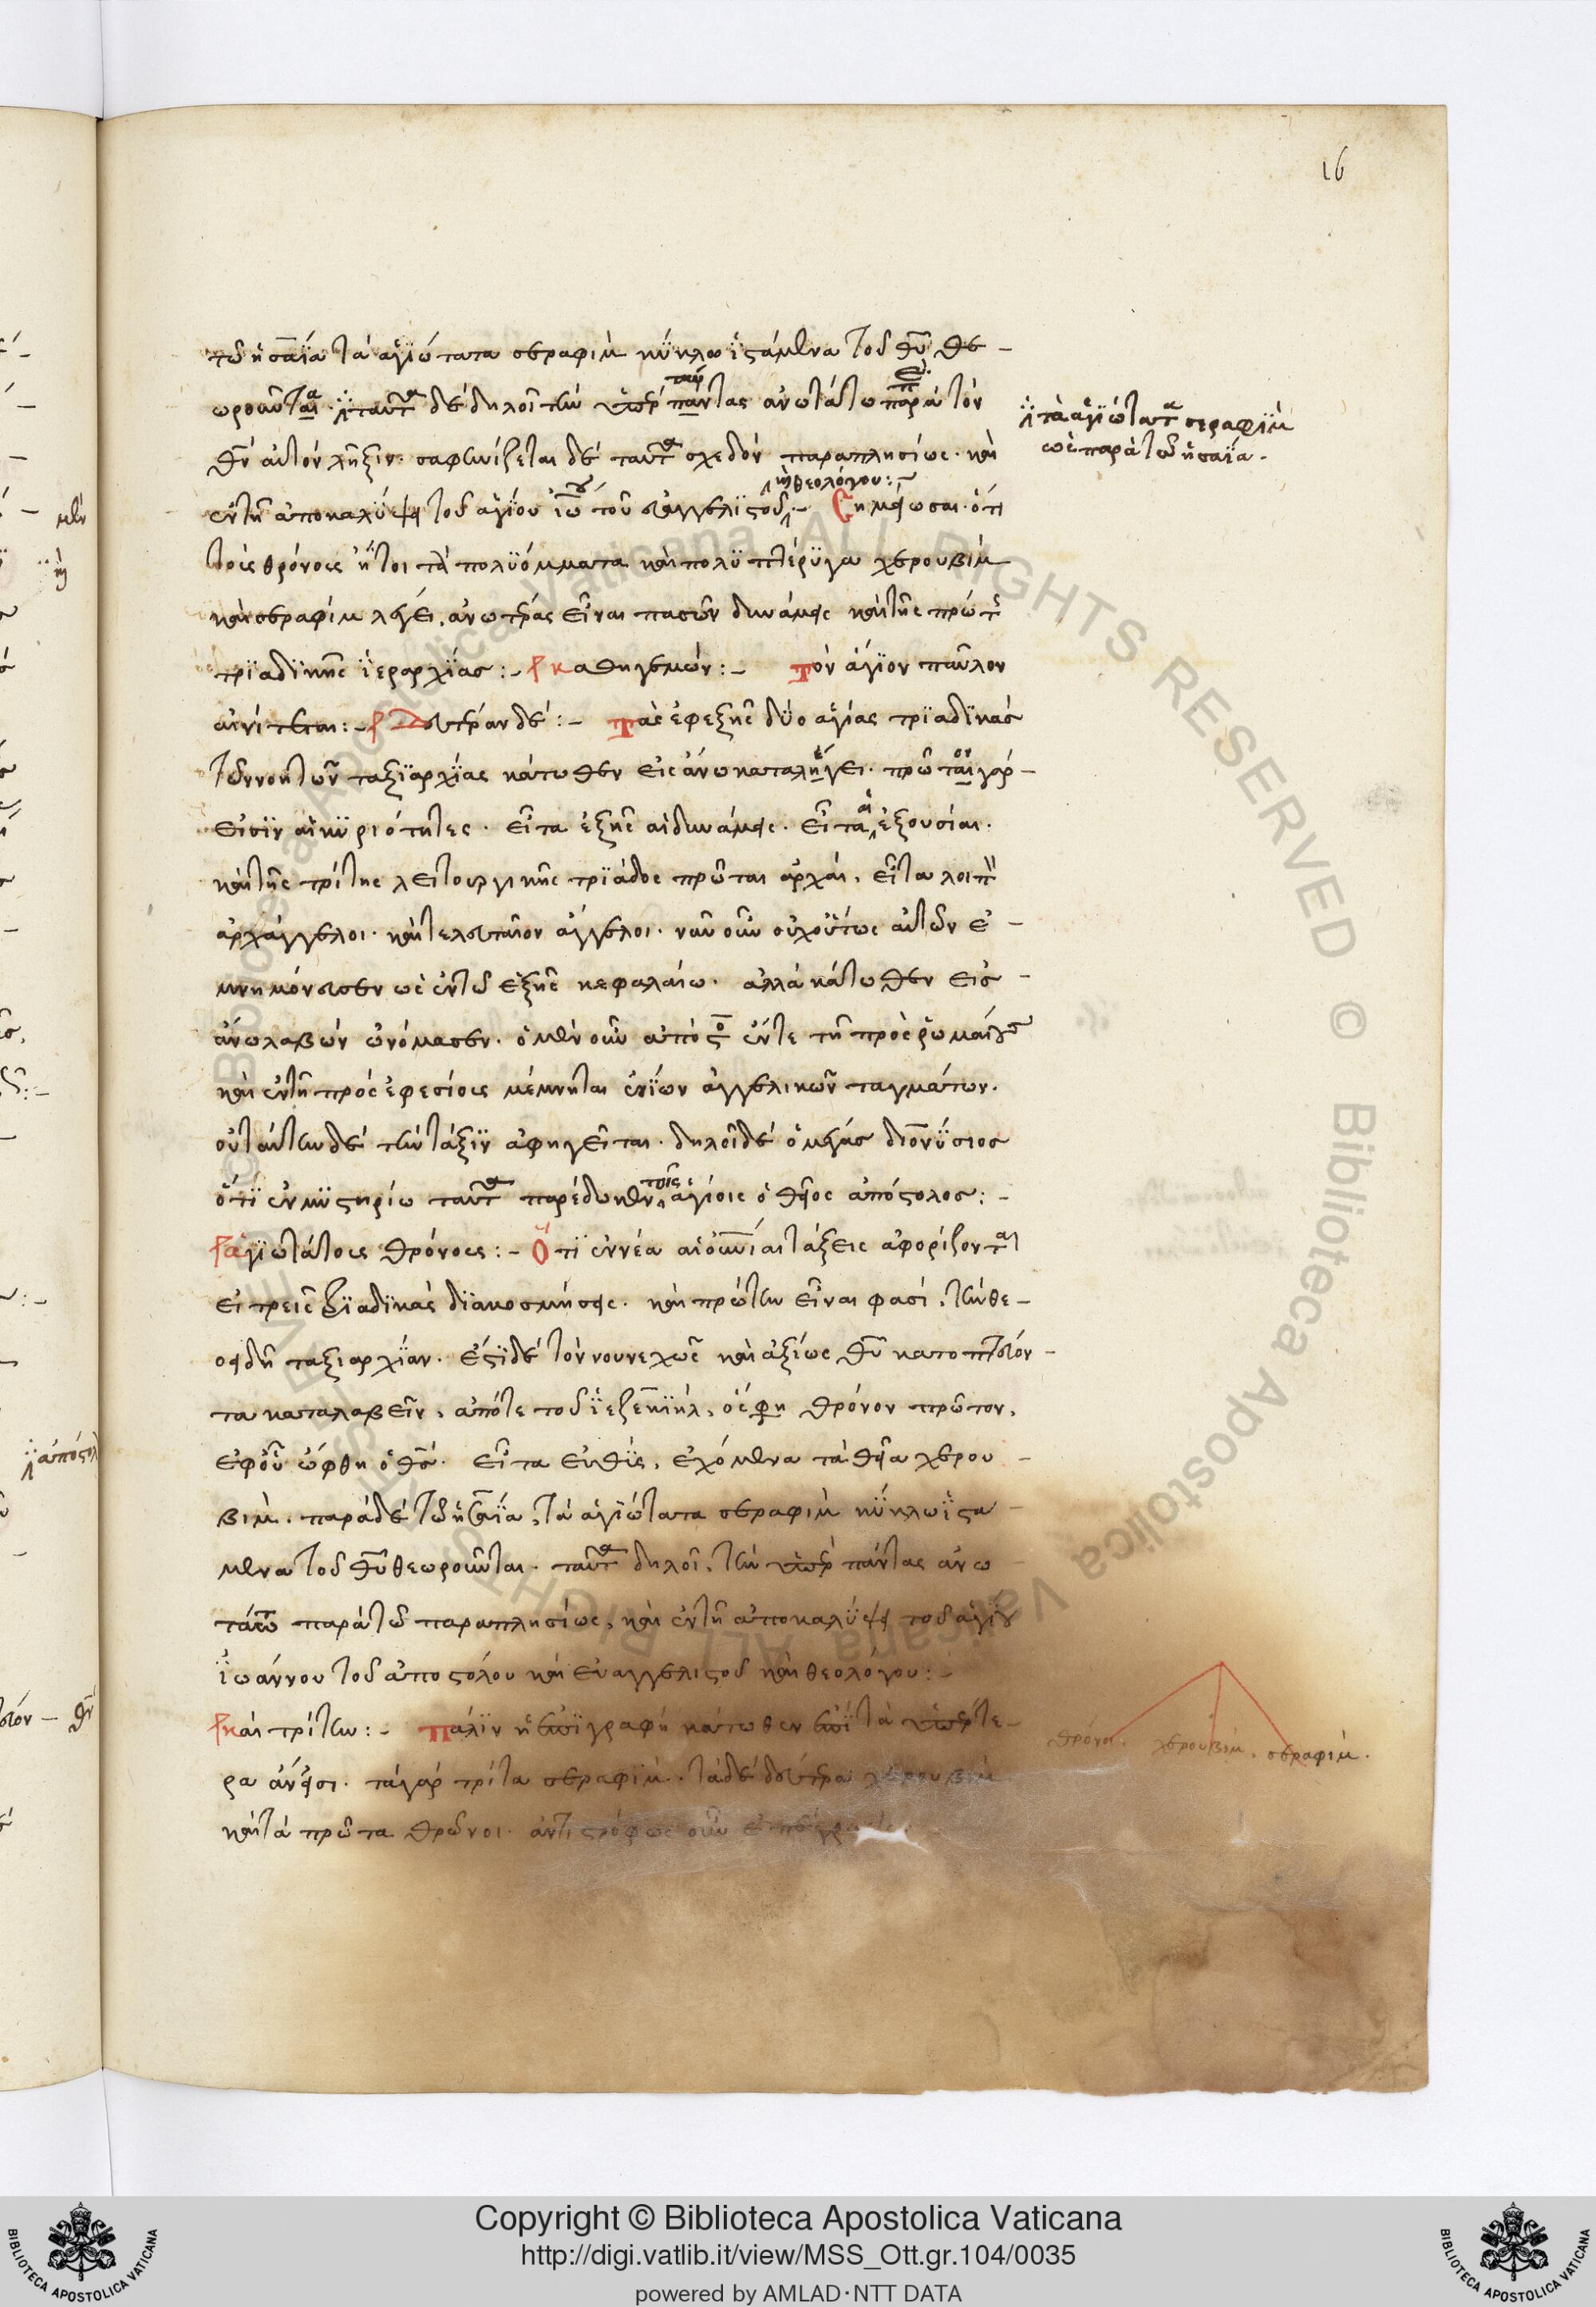 16
τῶ ἡσαΐα τὰ ἁγιώτατα σεραφὶμ κύκλω ἱστάμενα τοῦ θῦ θε -
ωροῦνται. ταῦτα δὲ δηλοῖ τὴν ὑπὲρ πάντας ἀνωτάτω παρὰ τὸν
θν αὐτὸν λῆξιν. σαφηνίζεται δὲ ταῦτα σχεδὸν παραπλησίως. καὶ
ἐν τῆ ἀποκαλύψει τοῦ ἁγίου ἰω τοῦ εὐαγγελιστοῦ καὶ θεολόγου :- Σημείωσαι. ὅτι
τοὺς θρόνους ἤτοι τὰ πολυόμματα καὶ πολυπτέρυγα χερουβὶμ
καὶ σεραφὶμ λέγει. ἀνωτέρας εἶναι πασῶν δυνάμεις καὶ τῆς πρώτ
τριαδικῆς ἱεραρχίας :- καθηγεμών :- τὸν ἅγιον παῦλον
αἰνίτεται :- Δευτέραν δέ :- τὰς ἐφεξῆς δύο ἁγίας τριαδικὰς
τῶν νοητῶν ταξιαρχίας κάτωθεν εἰς ἄνω καταλήγει. πρῶται γὰρ -
εἰσὶν αἱ κυριότητες. εἶτα ἑξῆς αἱ δυνάμεις. εἶτα αἱ ἐξουσίαι.
καὶ τῆς τρίτης λειτουργικῆς τριάδος πρῶται ἀρχαί. εἶτα λοιπὸ
ἀρχάγγελοι. καὶ τελευταῖον ἄγγελοι. νῦν οὖν οὐχ οὕτως αὐτῶν ἐ -
μνημόνευσεν ὡς ἐν τῶ ἑξῆς κεφαλαίω. ἀλλὰ κάτωθεν εἰς -
ἄνω λαβὼν ὠνόμασεν. ὁ μὲν οὖν ἀπόστο ἔν τε τῆ πρὸς ῥωμαίους
καὶ ἐν τῆ πρὸς ἐφεσίους μέμνηται ἐνίων ἀγγελικῶν ταγμάτων.
οὐ ταύτην δὲ τὴν τάξιν ἀφηγεῖται. δηλοῖ δὲ ὁ μέγας διονύσιος
ὅτι ἐν μυστηρίω ταῦτα παρέδωκεν τοῖς ἁγίοις ὁ θεῖος ἀπόστολος :-
ἁγιωτάτους θρόνους :- Ὅτι ἐννέα αἱ οὐνίαι τάξεις ἀφορίζονται
εἰ τρεῖς τριαδικὰς διακοσμήσεις. καὶ πρώτην εἶναι φασί. τὴν θε -
οειδῆ ταξιαρχίαν. ἔστι δὲ τὸν νουνεχῶς καὶ ἀξίως θῦ κατοπτεύον -
τα καταλαβεῖν. ἀπό τε τοῦ ἰεζεκιὴλ. ὃς ἔφη θρόνον πρῶτον.
ἐφ' οὗ ὤφθη ὁ θς. εἶτα εὐθὺς. ἐχόμενα τὰ θεῖα χερου -
βὶμ. παρὰ δὲ τῶ ἡσαΐα, τὰ ἁγιώτατα σεραφὶμ κύκλω ἱστά -
μενα τοῦ θῦ θεωροῦνται. ταῦτα δηλοῖ. τὴν ὑπὲρ πάντας ἀνω -
τάτω παρὰ τῶ παραπλησίως, καὶ ἐν τῆ ἀποκαλύψει τοῦ ἁγίου
ἰωάννου τοῦ ἀποστόλου καὶ εὐαγγελιστοῦ καὶ θεολόγου :-
καὶ τρίτην :- πάλιν ἡ ἐπιγραφὴ κάτωθεν ἐπὶ τὰ ὑπέρτε -
ρα ἄνεισι. τὰ γὰρ τρίτα σεραφίμ. τὰ δὲ δεύτερα χερουβὶμ
καὶ τὰ πρῶτα θρῶνοι. ἀντιστρόφως οὖν
τὰ ἁγιώτατα σεραφὶμ
ὡς παρὰ τῶ ἡσαΐα.
θρόνοι. χερουβίμ. σεραφίμ.
Copyright © Biblioteca Apostolica Vaticana
http://digi.vatlib.it/view/MSS_Ott.gr.104/0035
powered by AMLAD·NTT DATA